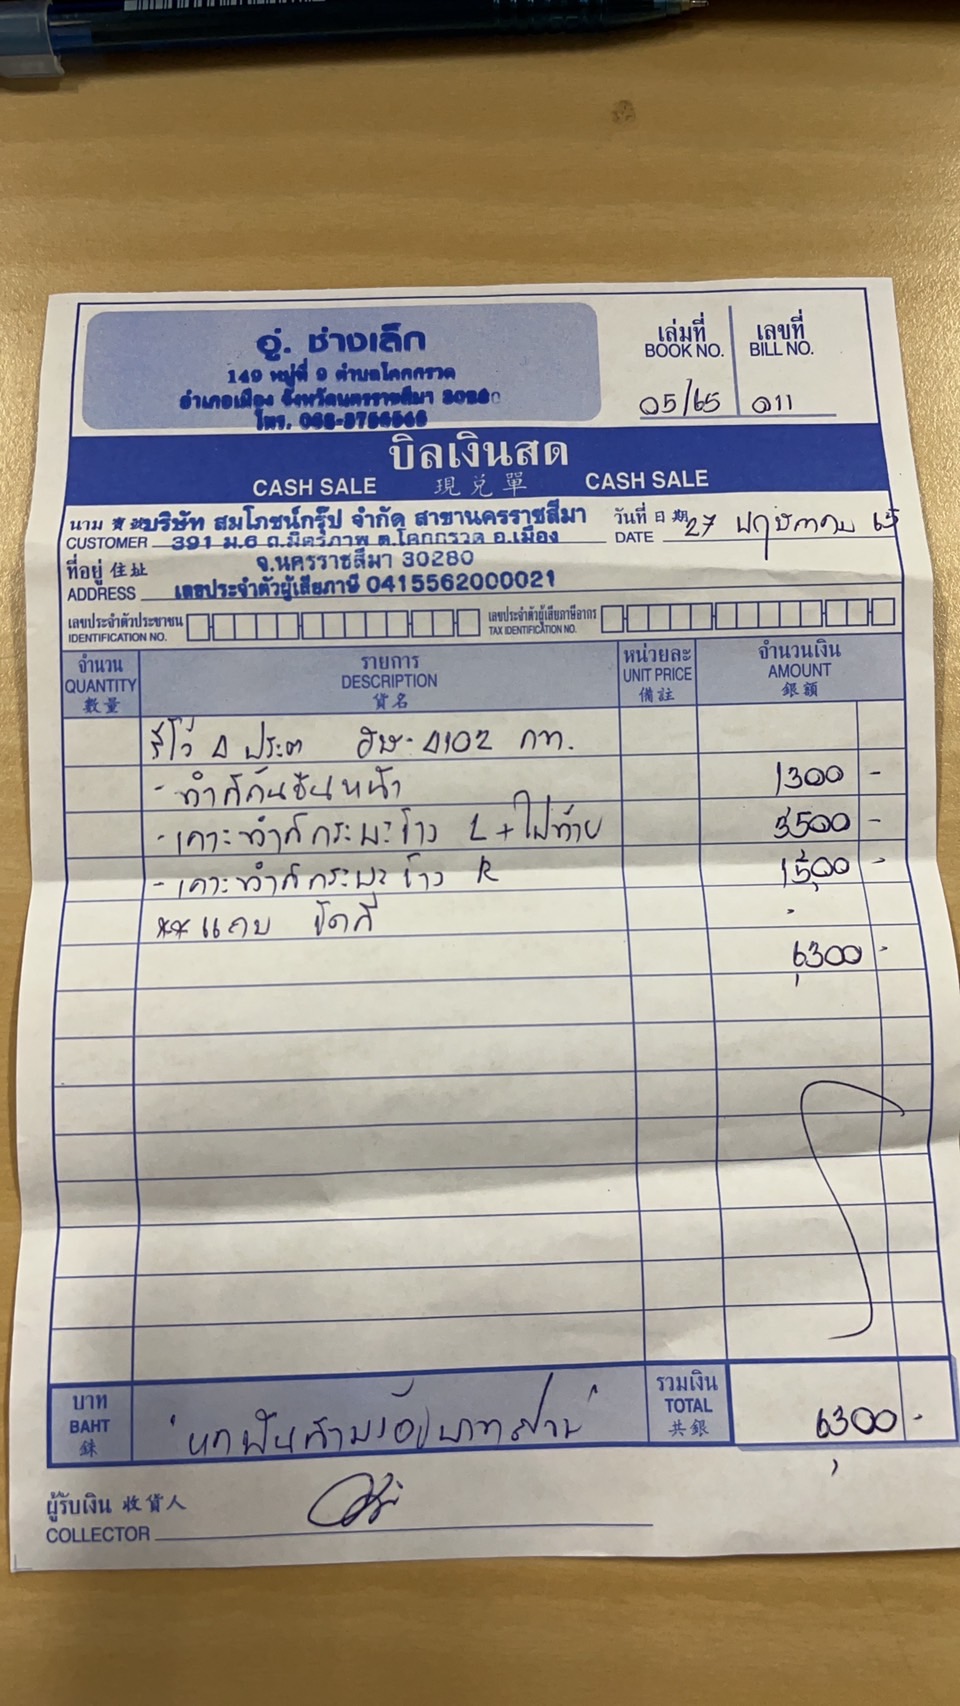 อู่. ช่างเล็ก
149 หมู่ที่ 9 ตำบลโคกกรวด
อำเภอเมือง จังหวัดนครราชสีมา 30280
โทร.
เล่มที่ เลขที่
BOOK NO. BILL NO.
05/65 011
บิลเงินสด
CASH SALE 現兌單 CASH SALE
นาม บริษัท สมโภชน์กรุ๊ป จำกัด สาขานครราชสีมา วันที่ 日期 27 พฤษภาคม 65
CUSTOMER 391 ม.6 ถ.มิตรภาพ ต.โคกกรวด อ.เมือง DATE
ที่อยู่ 住址 จ.นครราชสีมา 30280
ADDRESS เลขประจำตัวผู้เสียภาษี 0415562000021
เลขประจำตัวประชาชน เลขประจำตัวผู้เสียภาษีอากร
IDENTIFICATION NO. TAX IDENTIFICATION NO.
จำนวน รายการ หน่วยละ จำนวนเงิน
QUANTITY DESCRIPTION UNIT PRICE AMOUNT
數量 貨名 備註 銀額
รีโว่ 4 ประตู 4102 กท.
- ทำสีกันชนหน้า 1300 -
- เคาะทำสีกระบะข้าง L + ไฟท้าย 3500 -
- เคาะทำสีกระบะข้าง R 1,500 -
** แถม ขัดสี
6,300 -
บาท รวมเงิน
BAHT "หกพันสามร้อยบาทถ้วน" TOTAL 6,300 -
銖 共銀
ผู้รับเงิน 收貨人
COLLECTOR